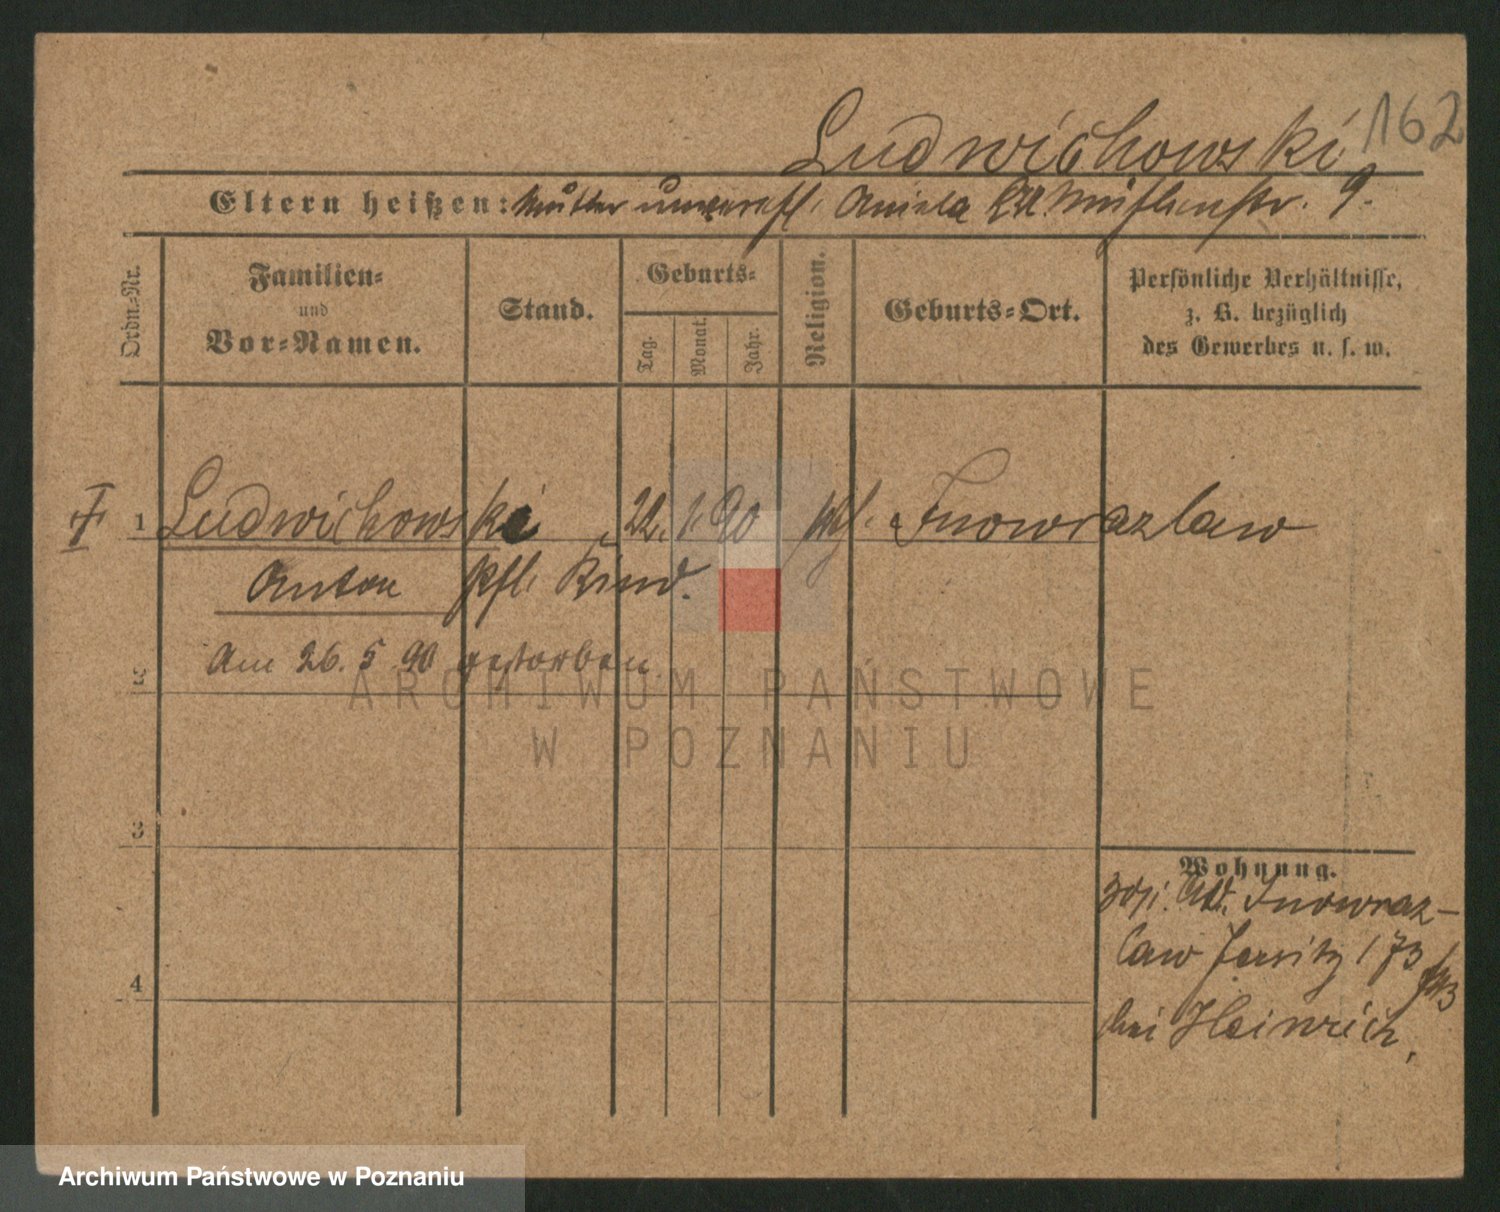 162
Ludwichowski
Eltern heißen: Mutter unverehl. Aniela Mühlenstr. 9.
Ordn.-Nr.
Familien-
und
Vor-Namen.
Stand.
Geburts-
Tag.
Monat.
Jahr.
Religion.
Geburts-Ort.
Persönliche Verhältnisse,
z. B. bezüglich
des Gewerbes u. s. w.
1 Ludwichowski 22. 1. 90 kath. Inowrazlaw
Anton pfl. Kind.
Am 26. 5. 90 gestorben.
2
3
4
Wohnung.
Inowraz-
law Jersitz 173
bei Heinrich,
ARCHIWUM PAŃSTWOWE
W POZNANIU
Archiwum Państwowe w Poznaniu